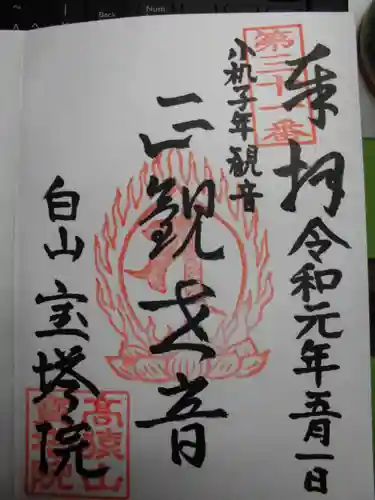 奉拝 令和元年五月一日
第三十一番
小机子年観音
正観世音
白山 宝塔院
高猿山
寶塔院
Num